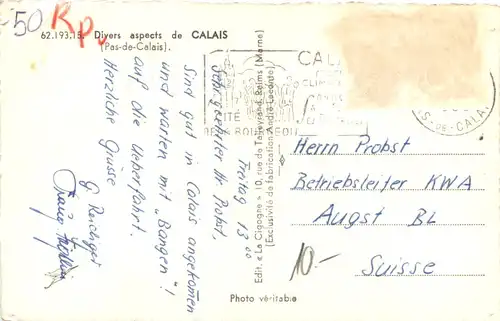 50 Rp.
62.193.15. Divers aspects de CALAIS
(Pas-de-Calais).
Freitag 13 00
Sehr geehrter Hr. Probst,
Sind gut in Calais angekommen
und warten mit "Bangen"!
auf die Ueberfahrt.
Herzliche Grüsse
Edit. « La Cigogne » 10, rue de Talleyrand, Reims (Marne)
(Exclusivité de fabrication André Leconte)
CITÉ
DES 6 BOURGEOIS
CALA
S-DE-CALA
Herrn Probst
Betriebsleiter KWA
Augst BL
Suisse
10.-
Photo véritable